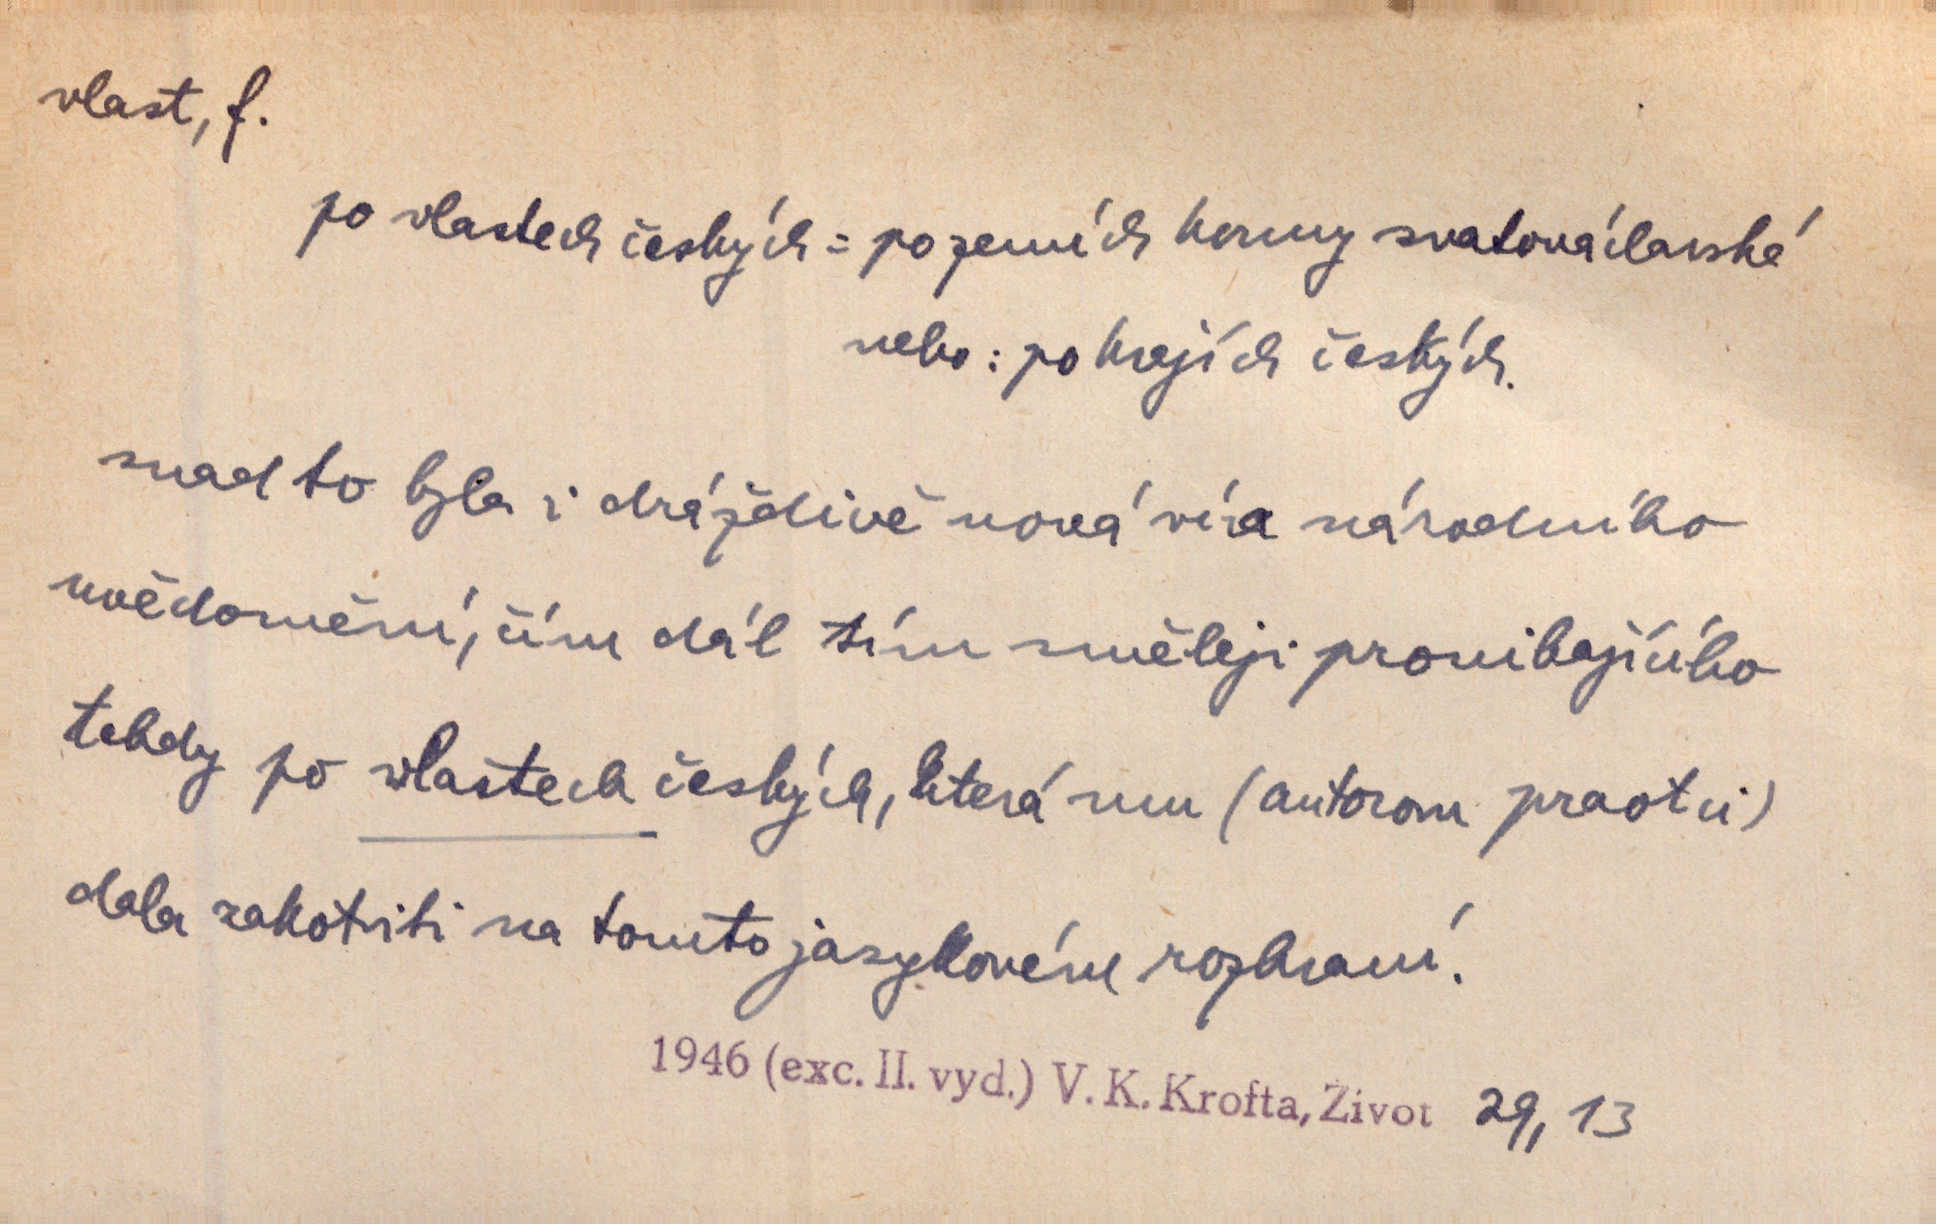 vlast, f.
po vlastech českých = po zemích koruny svatováclavské
nebo: po krajích českých.
snad to byla i dráždivě nová víra národního
uvědomění, čím dál tím směleji pronikajícího
tehdy po vlastech českých, která mu (autorovu praotci)
dala zakotviti na tomto jazykovém rozhraní.
1946 (exc. II. vyd.) V. K. Krofta, Život 29, 13